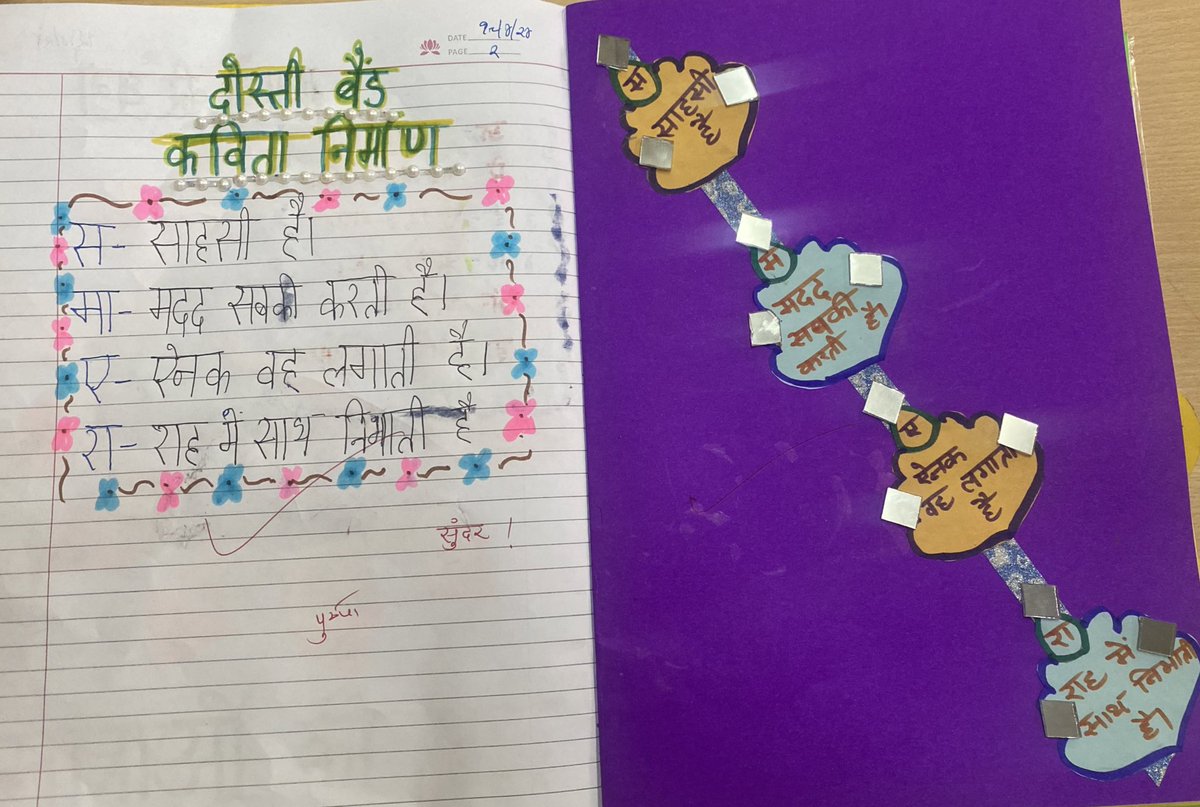 DATE
PAGE 2
दोस्ती बैंड
कविता निर्माण
स- साहसी है।
मा- मदद सबकी करती है।
ए- ऐनक वह लगाती है।
रा- राह में साथ निभाती है
सुंदर !
स
साहसी
है
म
मदद
सबकी
करती है।
ए
ऐनक
वह लगाती
है
रा
राह में
साथ निभाती
है।